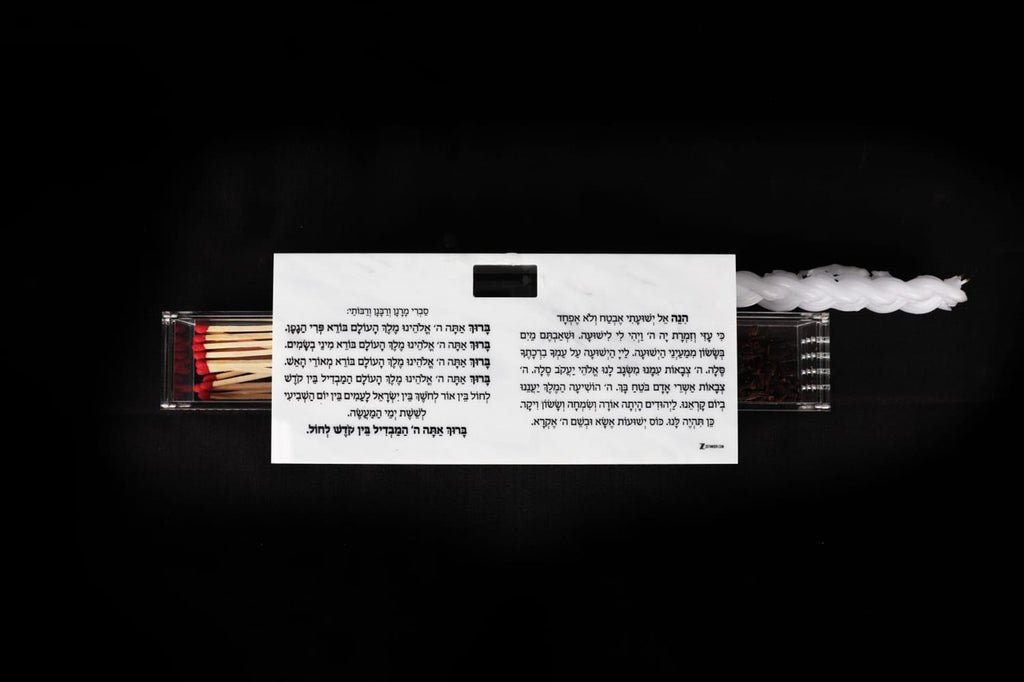 הִנֵּה אֵל יְשׁוּעָתִי אֶבְטַח וְלֹא אֶפְחָד
כִּי עָזִּי וְזִמְרָת יָהּ ה׳ וַיְהִי לִי לִישׁוּעָה. וּשְׁאַבְתֶּם מַיִם
בְּשָׂשׂוֹן מִמַּעַיְנֵי הַיְשׁוּעָה. לַייָ הַיְשׁוּעָה עַל עַמְּךָ בִרְכָתֶךָ
סֶּלָה. ה׳ צְבָאוֹת עִמָּנוּ מִשְׂגָּב לָנוּ אֱלֹהֵי יַעֲקֹב סֶלָה. ה׳
צְבָאוֹת אַשְׁרֵי אָדָם בֹּטֵחַ בָּךְ. ה׳ הוֹשִׁיעָה הַמֶּלֶךְ יַעֲנֵנוּ
בְיוֹם קָרְאֵנוּ. לַיְּהוּדִים הָיְתָה אוֹרָה וְשִׂמְחָה וְשָׂשׂוֹן וִיקָר.
כֵּן תִּהְיֶה לָּנוּ. כּוֹס יְשׁוּעוֹת אֶשָּׂא וּבְשֵׁם ה׳ אֶקְרָא.
סַבְרִי מָרָנָן וְרַבָּנָן וְרַבּוֹתַי:
בָּרוּךְ אַתָּה ה׳ אֱלֹהֵינוּ מֶלֶךְ הָעוֹלָם בּוֹרֵא פְּרִי הַגָּפֶן.
בָּרוּךְ אַתָּה ה׳ אֱלֹהֵינוּ מֶלֶךְ הָעוֹלָם בּוֹרֵא מִינֵי בְשָׂמִים.
בָּרוּךְ אַתָּה ה׳ אֱלֹהֵינוּ מֶלֶךְ הָעוֹלָם בּוֹרֵא מְאוֹרֵי הָאֵשׁ.
בָּרוּךְ אַתָּה ה׳ אֱלֹהֵינוּ מֶלֶךְ הָעוֹלָם הַמַּבְדִּיל בֵּין קֹדֶשׁ
לְחוֹל בֵּין אוֹר לְחֹשֶׁךְ בֵּין יִשְׂרָאֵל לָעַמִּים בֵּין יוֹם הַשְּׁבִיעִי
לְשֵׁשֶׁת יְמֵי הַמַּעֲשֶׂה.
בָּרוּךְ אַתָּה ה׳ הַמַּבְדִּיל בֵּין קֹדֶשׁ לְחוֹל.